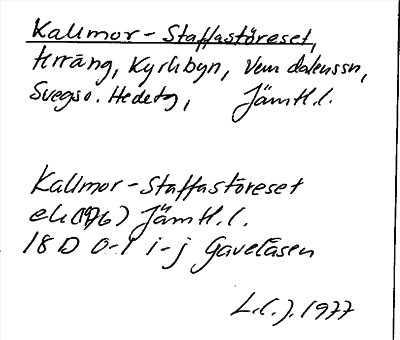 Kallmor-Staffastöreset,
Kyrkbyn, Vemdalenssn,
Svegs o. Hede tg, Jämtl.l.
Kallmor-Staffastöreset
ek (1976) Jämtl.l.
18 D 0-1 i-j Gåvelåsen
L.l.j. 1977